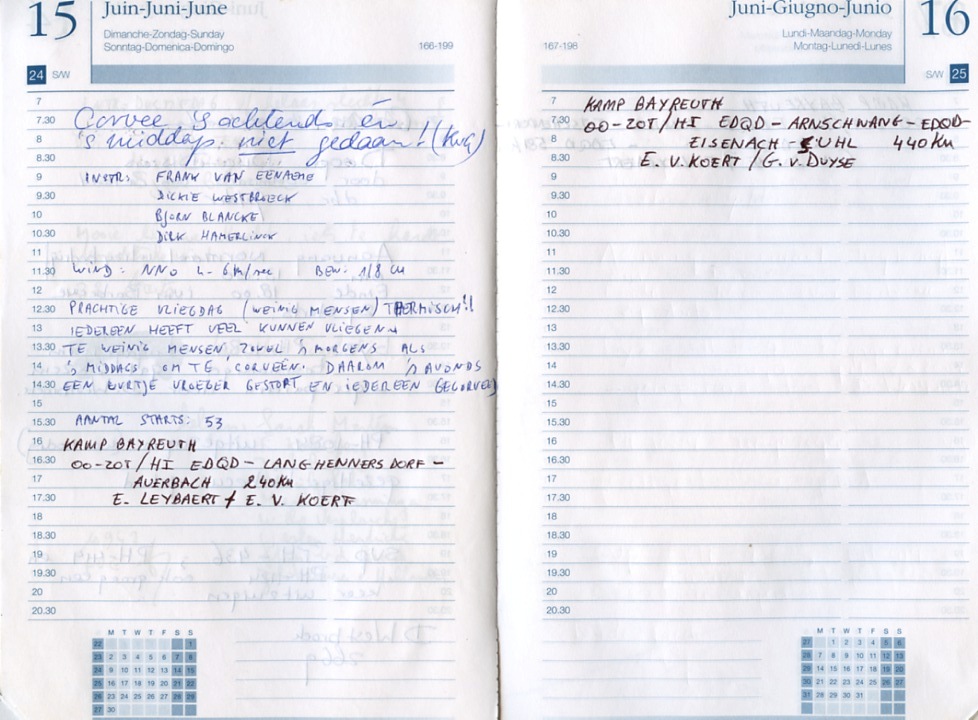 15 Juin-Juni-June
Dimanche-Zondag-Sunday
Sonntag-Domenica-Domingo
166-199
24 S/W
7
7.30 Corvee 's ochtends én
8 's middags niet gedaan!! (KWG)
8.30
9 INSTR: FRANK VAN EENAEME
9.30 DICKIE WESTBROECK
10 BJORN BLANCKE
10.30 DIRK HAMERLINCK
11
11.30 WIND: NNO 4-6 M/sec BEW: 1/8 CU
12
12.30 PRACHTIGE VLIEGDAG (WEINIG MENSEN) THERMISCH!!
13 IEDEREEN HEEFT VEEL KUNNEN VLIEGEN
13.30 TE WEINIG MENSEN ZOWEL 'S MORGENS ALS
14 'S MIDDAGS OM TE CORVEËN. DAAROM 'S AVONDS
14.30 EEN UURTJE VROEGER GESTOPT EN IEDEREEN GECORVEED
15
15.30 AANTAL STARTS: 53
16 KAMP BAYREUTH
16.30 OO-ZOT/HI EDQD - LANGHENNERSDORF -
17 AUERBACH 240Km
17.30 E. LEYBAERT / E. V. KOERT
18
18.30
19
19.30
20
20.30
M T W T F S S
22 1
23 2 3 4 5 6 7 8
24 9 10 11 12 13 14 15
25 16 17 18 19 20 21 22
26 23 24 25 26 27 28 29
27 30
Juni-Giugno-Junio 16
Lundi-Maandag-Monday
Montag-Lunedi-Lunes
167-198
S/W 25
7 KAMP BAYREUTH
7.30 OO-ZOT/HI EDQD - ARNSCHWANG - EDQD -
8 EISENACH - SUHL 440Km
8.30 E. V. KOERT / G. V. DUYSE
9
9.30
10
10.30
11
11.30
12
12.30
13
13.30
14
14.30
15
15.30
16
16.30
17
17.30
18
18.30
19
19.30
20
20.30
M T W T F S S
27 1 2 3 4 5 6
28 7 8 9 10 11 12 13
29 14 15 16 17 18 19 20
30 21 22 23 24 25 26 27
31 28 29 30 31